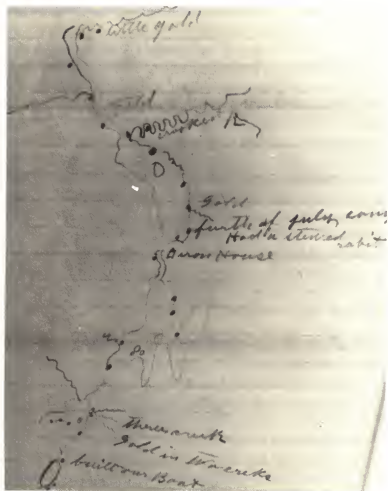 little gold
gold
crooked R
D
Gold
furth of july camp
Had a stewed rabit
Huron House
80
three creek
gold in two creeks
built our Boat